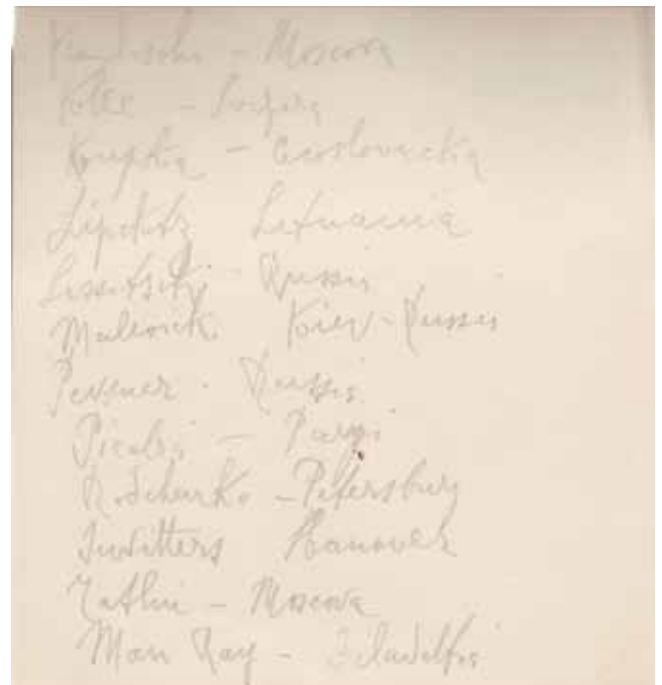 Kandinski - Moscova
Klee -
Kupka - Cecoslovacchia
Lipchitz Lituania
Lissitsky. Russia
Malevich. Kiev - Russia
Pevsner. Russia
Picabia - Parigi
Rodchenko - Petersburg
Switters Hanover
Tatlin - Moscova
Man Ray - Filadelfia